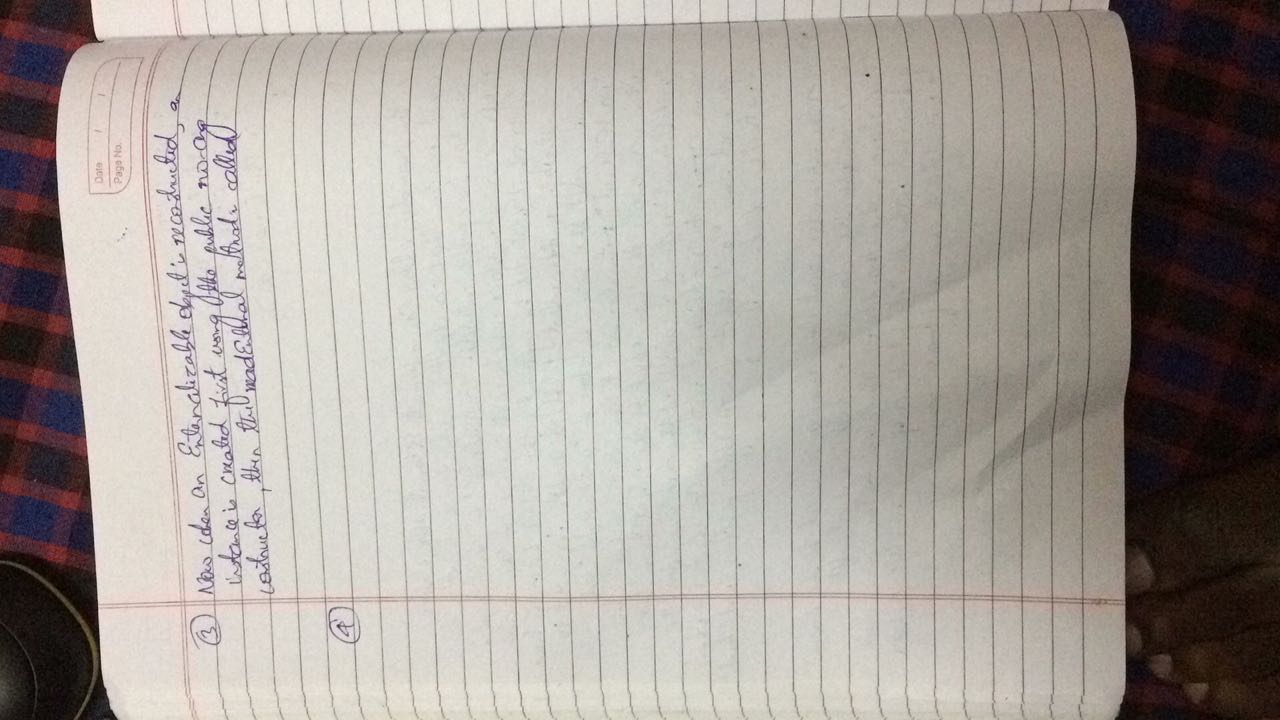 Date / /
Page No.
③ Now when an Externalizable object is reconstructed, an
instance is created first using the public no-arg
constructor, then the readExternal method is called
④